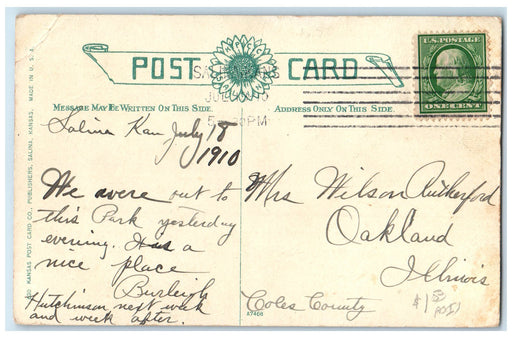 POST CARD
U.S. POSTAGE
ONE CENT
MESSAGE MAY BE WRITTEN ON THIS SIDE.
ADDRESS ONLY ON THIS SIDE.
PM
Salina Kan July 18
1910
We were out to
this Park yesterday
evening. Has a
nice place
Burleigh
Hutchinson next week
and week after.
Mrs Wilson Rutherford
Oakland
Illinois
Coles County
A7408
KANSAS POST CARD CO., PUBLISHERS, SALINA, KANSAS. MADE IN U. S. A.